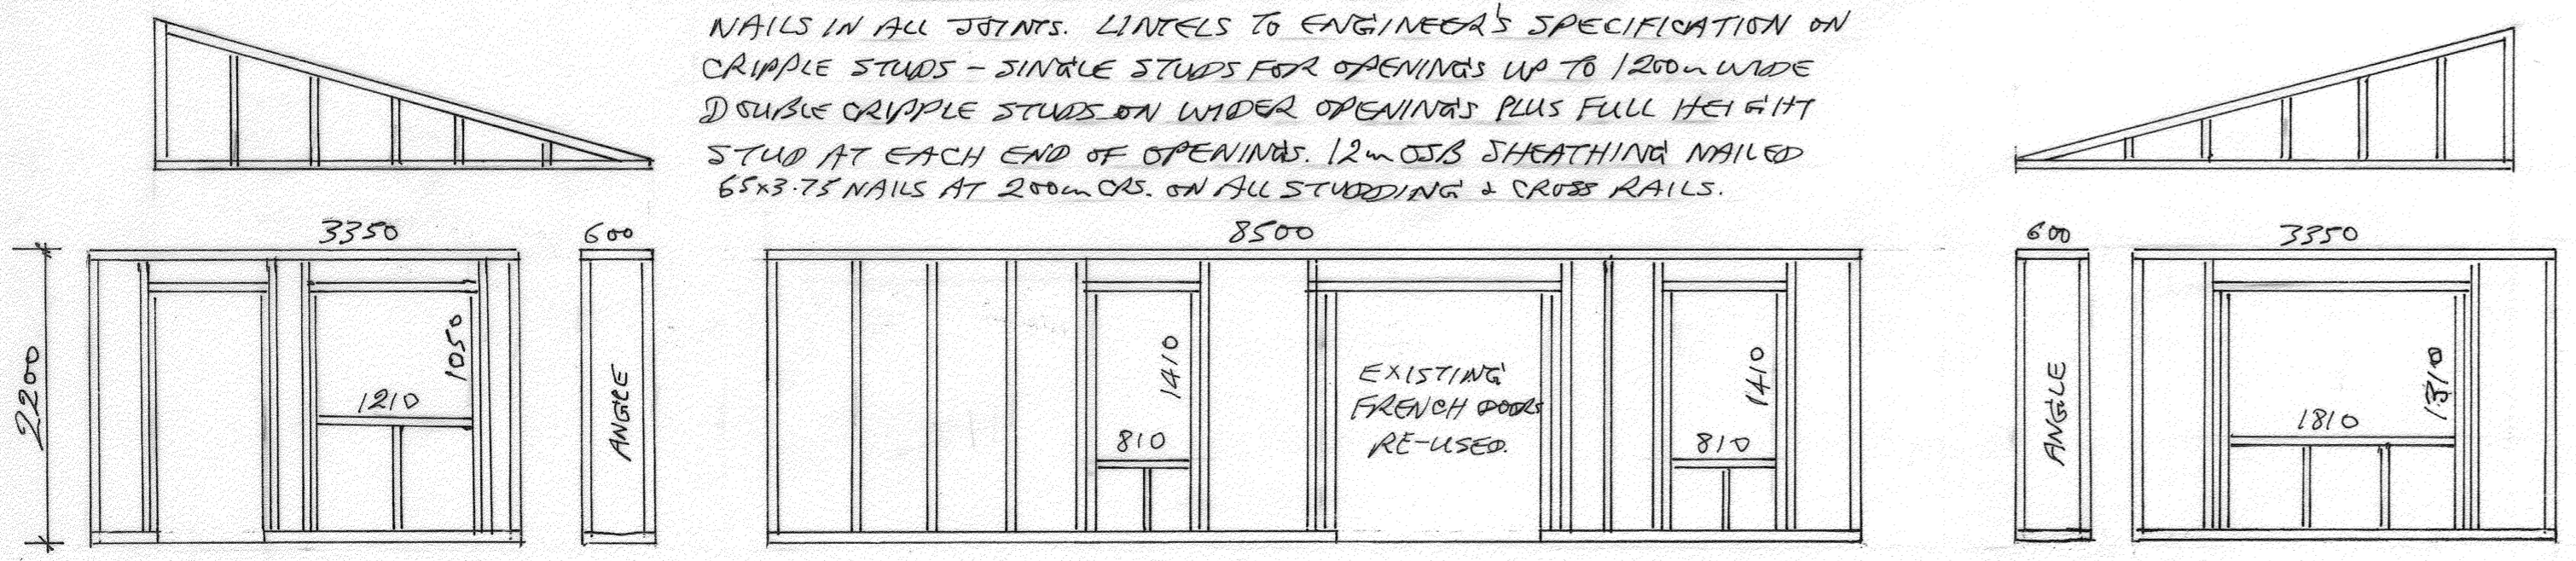 NAILS IN ALL JOINTS. LINTELS TO ENGINEER'S SPECIFICATION ON
CRIPPLE STUDS - SINGLE STUDS FOR OPENINGS UP TO 1200m WIDE
DOUBLE CRIPPLE STUDS ON WIDER OPENINGS PLUS FULL HEIGHT
STUD AT EACH END OF OPENINGS. 12m OSB SHEATHING NAILED
65x3.75 NAILS AT 200m CRS. ON ALL STUDDING & CROSS RAILS.
3350
600
8500
600
3350
2200
1050
1210
ANGLE
1410
810
EXISTING
FRENCH DOORS
RE-USED.
1410
810
ANGLE
1310
1810